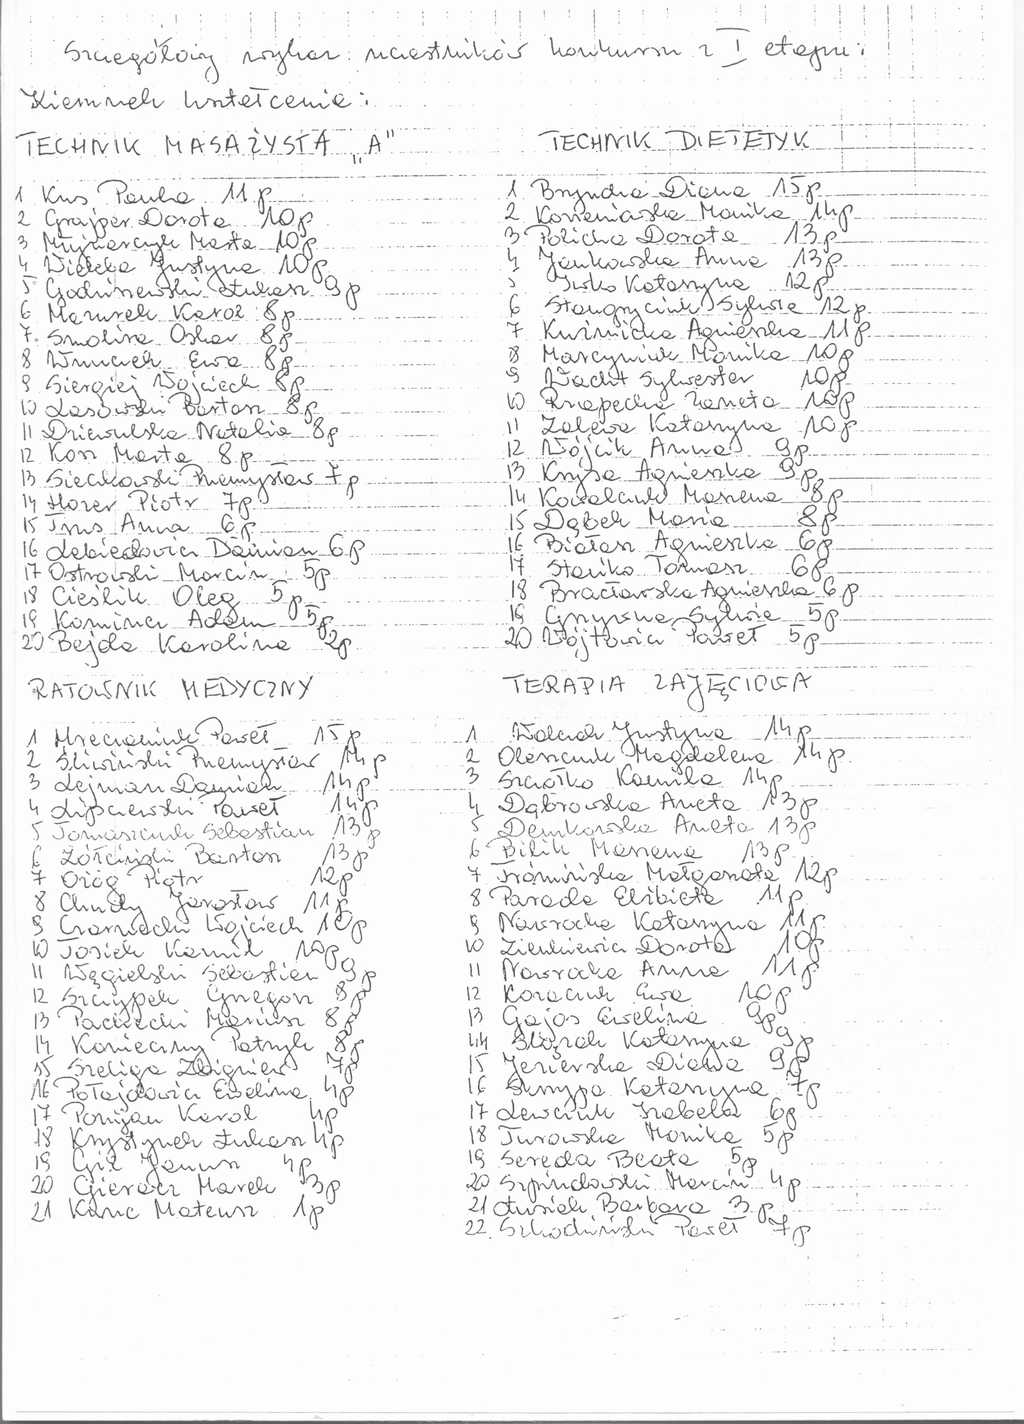 Szczegółowy wykaz uczestników konkursu z I etapu:
Kierunek kształcenia:
TECHNIK MASAŻYSTA „A"
1 Kus Paula 11p
2 Grajper Dorota 10p
3 Młynarczyk Marta 10p
4 Justyna 10p
5 Godziszewski Łukasz 9p
6 Mazurek Karol 8p
7. Smolira Oskar 8p
8 Wnuczek Ewa 8p
9 Siergiej Wojciech 8p
10 Lasowski Bartosz 8p
11 Dziewulska Natalia 8p
12 Kosz Marta 8p
13 Sieczkowski Przemysław 7p
14 Horer Piotr 7p
15 Anna 6p
16 Lebiedowicz Damian 6p
17 Ostrowski Marcin 5p
18 Cieślik Oleg 5p
19 Kominez Adam 5p
20 Bejda Karolina 2p
TECHNIK DIETETYK
1 Bryndza Diana 15p
2 Korneniewska Monika 14p
3 Policha Dorota 13p
4 Jankowska Anna 13p
5 Iwko Katarzyna 12p
6 Staugryciuk Sylwia 12p
7 Kuźmicka Agnieszka 11p
8 Marcyniuk Monika 10p
9 Wacht Sylwester 10p
10 Rzepecka Żaneta 10p
11 Zalewa Katarzyna 10p
12 Wójcik Anna 9p
13 Krysa Agnieszka 9p
14 Kowalczuk Marzena 8p
15 Dąbek Maria 8p
16 Białasz Agnieszka 6p
17 Stańko Tomasz 6p
18 Bracławska Agnieszka 6p
19 Sylwia 5p
20 Wójtowicz Paweł 5p
RATOWNIK MEDYCZNY
1 Hreczaniuk Paweł 15p
2 Śliwiński Przemysław 14p
3 Lejman Damian 14p
4 Lipczewski Paweł 14p
5 Tomaszczuk Sebastian 13p
6 Żółciński Bartosz 13p
7 Ożóg Piotr 12p
8 Chudy Jarosław 11p
9 Czarnecki Wojciech 10p
10 Josiek Kamil 10p
11 Węgielski Sebastian 9p
12 Szczypek Grzegorz 8p
13 Pachecki Mariusz 8p
14 Konieczny Patryk 8p
15 Szeliga Zbigniew 7p
16 Połajdowicz Ewelina 4p
17 Pomijan Karol 4p
18 Krystynek Łukasz 4p
19 Giź Janusz 4p
20 Gieracz Marek 3p
21 Kanc Mateusz 1p
TERAPIA ZAJĘCIOWA
1 Walczak Justyna 14p
2 Oleszczuk Magdalena 14p.
3 Szciotko Kamila 14p
4 Dąbrowska Aneta 13p
5 Demkowska Aneta 13p
6 Bilik Marzena 13p
7 Małgorzata 12p
8 Parada Elżbieta 11p
9 Nawrocka Katarzyna 11p
10 Zienkiewicz Dorota 10p
11 Nawrocka Anna 11p
12 Koraczuk Ewa 10p
13 Gajos Ewelina 9p
14 Katarzyna 9p
15 Jezierska Diana 9p
16 Skrzypa Katarzyna 7p
17 Lewczuk Izabela 6p
18 Turowska Monika 5p
19 Sereda Beata 5p
20 Szpindowski Marcin 4p
21 Łusiak Barbara 3p
22. Szkodziński Paweł 7p